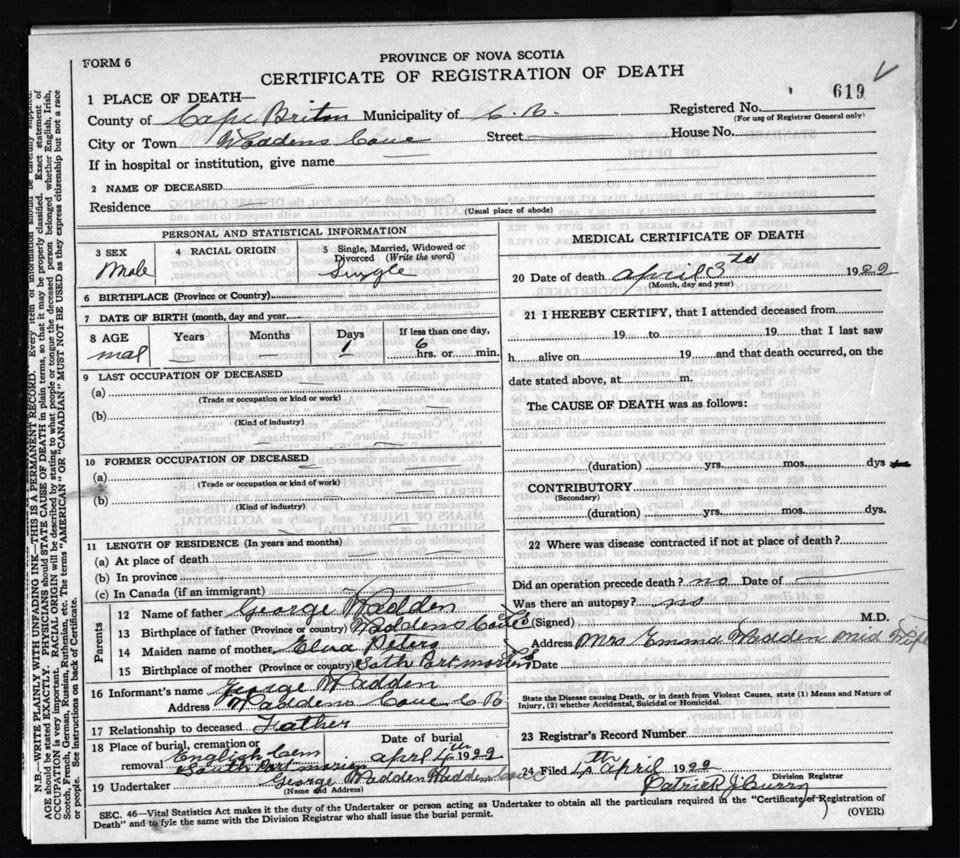 FORM 6
PROVINCE OF NOVA SCOTIA
CERTIFICATE OF REGISTRATION OF DEATH
619
1 PLACE OF DEATH—
County of Cape Briton Municipality of C. B. Registered No.
(For use of Registrar General only)
City or Town Waddens Cove Street House No.
If in hospital or institution, give name
2 NAME OF DECEASED
Residence
(Usual place of abode)
PERSONAL AND STATISTICAL INFORMATION
3 SEX
Male
4 RACIAL ORIGIN
5 Single, Married, Widowed or Divorced (Write the word)
Single
6 BIRTHPLACE (Province or Country)
7 DATE OF BIRTH (month, day and year)
8 AGE
mal
Years Months Days If less than one day,
1 6
hrs. or min.
9 LAST OCCUPATION OF DECEASED
(a)
(Trade or occupation or kind or work)
(b)
(Kind of industry)
10 FORMER OCCUPATION OF DECEASED
(a)
(Trade or occupation or kind of work)
(b)
(Kind of industry)
11 LENGTH OF RESIDENCE (In years and months)
(a) At place of death
(b) In province
(c) In Canada (if an immigrant)
Parents
12 Name of father George Wadden
13 Birthplace of father (Province or country) Waddens Cove
14 Maiden name of mother Peters
15 Birthplace of mother (Province or country)
16 Informant's name George Wadden
Address Waddens Cove C B
17 Relationship to deceased Father
18 Place of burial, cremation or removal Date of burial
English Cem
South Port morien
aprl 4th 1922
19 Undertaker George Wadden Wadden Cove
(Name and Address)
MEDICAL CERTIFICATE OF DEATH
20 Date of death April 3rd 1922
(Month, day and year)
21 I HEREBY CERTIFY, that I attended deceased from
19 to 19 that I last saw
h alive on 19 and that death occurred, on the
date stated above, at m.
The CAUSE OF DEATH was as follows:
(duration) yrs. mos. dys
CONTRIBUTORY
(Secondary)
(duration) yrs. mos. dys.
22 Where was disease contracted if not at place of death?
Did an operation precede death? no Date of
Was there an autopsy? no
(Signed) M.D.
Address Mrs Emma Wadden Mid Wife
Date
State the Disease causing Death, or in death from Violent Causes, state (1) Means and Nature of
Injury, (2) whether Accidental, Suicidal or Homicidal.
23 Registrar's Record Number
24 Filed 4th April 1922
Patrick J Curry
Division Registrar
SEC. 46—Vital Statistics Act makes it the duty of the Undertaker or person acting as Undertaker to obtain all the particulars required in the "Certificate of Registration of
Death" and to fyle the same with the Division Registrar who shall issue the burial permit.
(OVER)
N.B.—WRITE PLAINLY WITH UNFADING INK—THIS IS A PERMANENT RECORD. Every item of information should be carefully supplied.
AGE should be stated EXACTLY. PHYSICIANS should STATE CAUSE OF DEATH in plain terms, so that it may be properly classified. Exact statement of
OCCUPATION is very important. RACIAL ORIGIN will be described by stating to what people or tongue the deceased person belonged whether English, Irish,
Scotch, French, German, Russian, Ruthenian, etc. The terms "AMERICAN" OR "CANADIAN" MUST NOT BE USED as they express citizenship but not a race
or people. See instructions on back of Certificate.